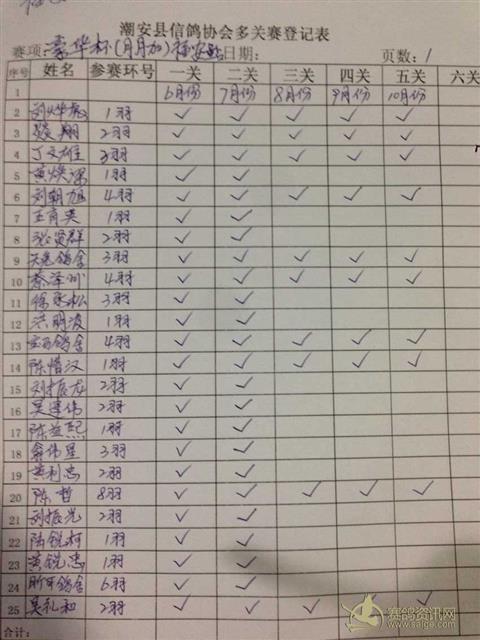 潮安县信鸽协会多关赛登记表
赛项: 豪华杯(月月加) 福安站 日期: 页数: 1
序号 姓名 参赛环号 一关 二关 三关 四关 五关 六关
1 6月份 7月份 8月份 9月份 10月份
2 刘烨彪 1羽 ✓ ✓ ✓ ✓ ✓
3 翔 2羽 ✓ ✓ ✓ ✓ ✓
4 丁文雄 3羽 ✓ ✓ ✓ ✓ ✓
5 黄焕深 1羽 ✓ ✓
6 刘朝旭 4羽 ✓ ✓ ✓ ✓ ✓
7 王育英 1羽 ✓ ✓
8 贤群 2羽 ✓ ✓
9 天苑鸽舍 3羽 ✓ ✓ ✓ ✓ ✓
10 蔡泽 4羽 ✓ ✓ ✓ ✓ ✓
11 徐永松 3羽 ✓ ✓
12 洪明波 1羽 ✓ ✓
13 鸽舍 4羽 ✓ ✓ ✓ ✓ ✓
14 陈惜汉 1羽 ✓ ✓ ✓ ✓ ✓
15 刘振龙 2羽 ✓ ✓
16 吴建伟 2羽 ✓ ✓
17 陈益熙 1羽 ✓ ✓
18 翁伟星 3羽 ✓ ✓
19 黄利忠 2羽 ✓ ✓
20 陈哲 8羽 ✓ ✓ ✓ ✓ ✓
21 刘振光 2羽 ✓ ✓
22 陆锐柯 1羽 ✓ ✓
23 黄锐忠 1羽 ✓ ✓
24 鸽舍 6羽 ✓ ✓
25 吴礼和 2羽 ✓ ✓ ✓ ✓ ✓
合计:
赛鸽资讯网
www.saige.com